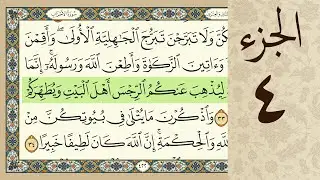 كُنَّ وَلَا تَبَرَّجْنَ تَبَرُّجَ الْجَٰهِلِيَّةِ الْأُولَىٰ وَأَقِمْنَ
وَءَاتِينَ الزَّكَوٰةَ وَأَطِعْنَ اللَّهَ وَرَسُولَهُ إِنَّمَا
لِيُذْهِبَ عَنكُمُ الرِّجْسَ أَهْلَ الْبَيْتِ وَيُطَهِّرَكُمْ
٣٣ وَاذْكُرْنَ مَا يُتْلَىٰ فِي بُيُوتِكُنَّ مِنْ
اللَّهِ وَالْحِكْمَةِ إِنَّ اللَّهَ كَانَ لَطِيفًا خَبِيرًا ٣٤
٤٢٢
الجزء
٤